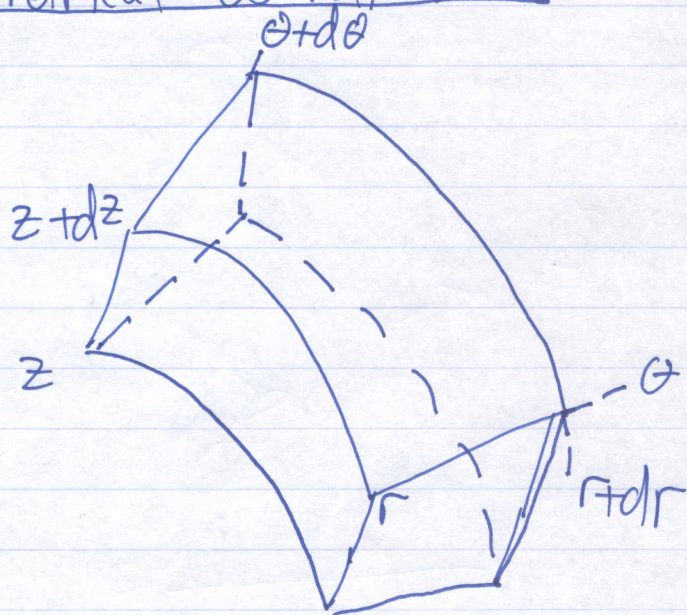 θ+dθ
z+dz
z
θ
r
r+dr